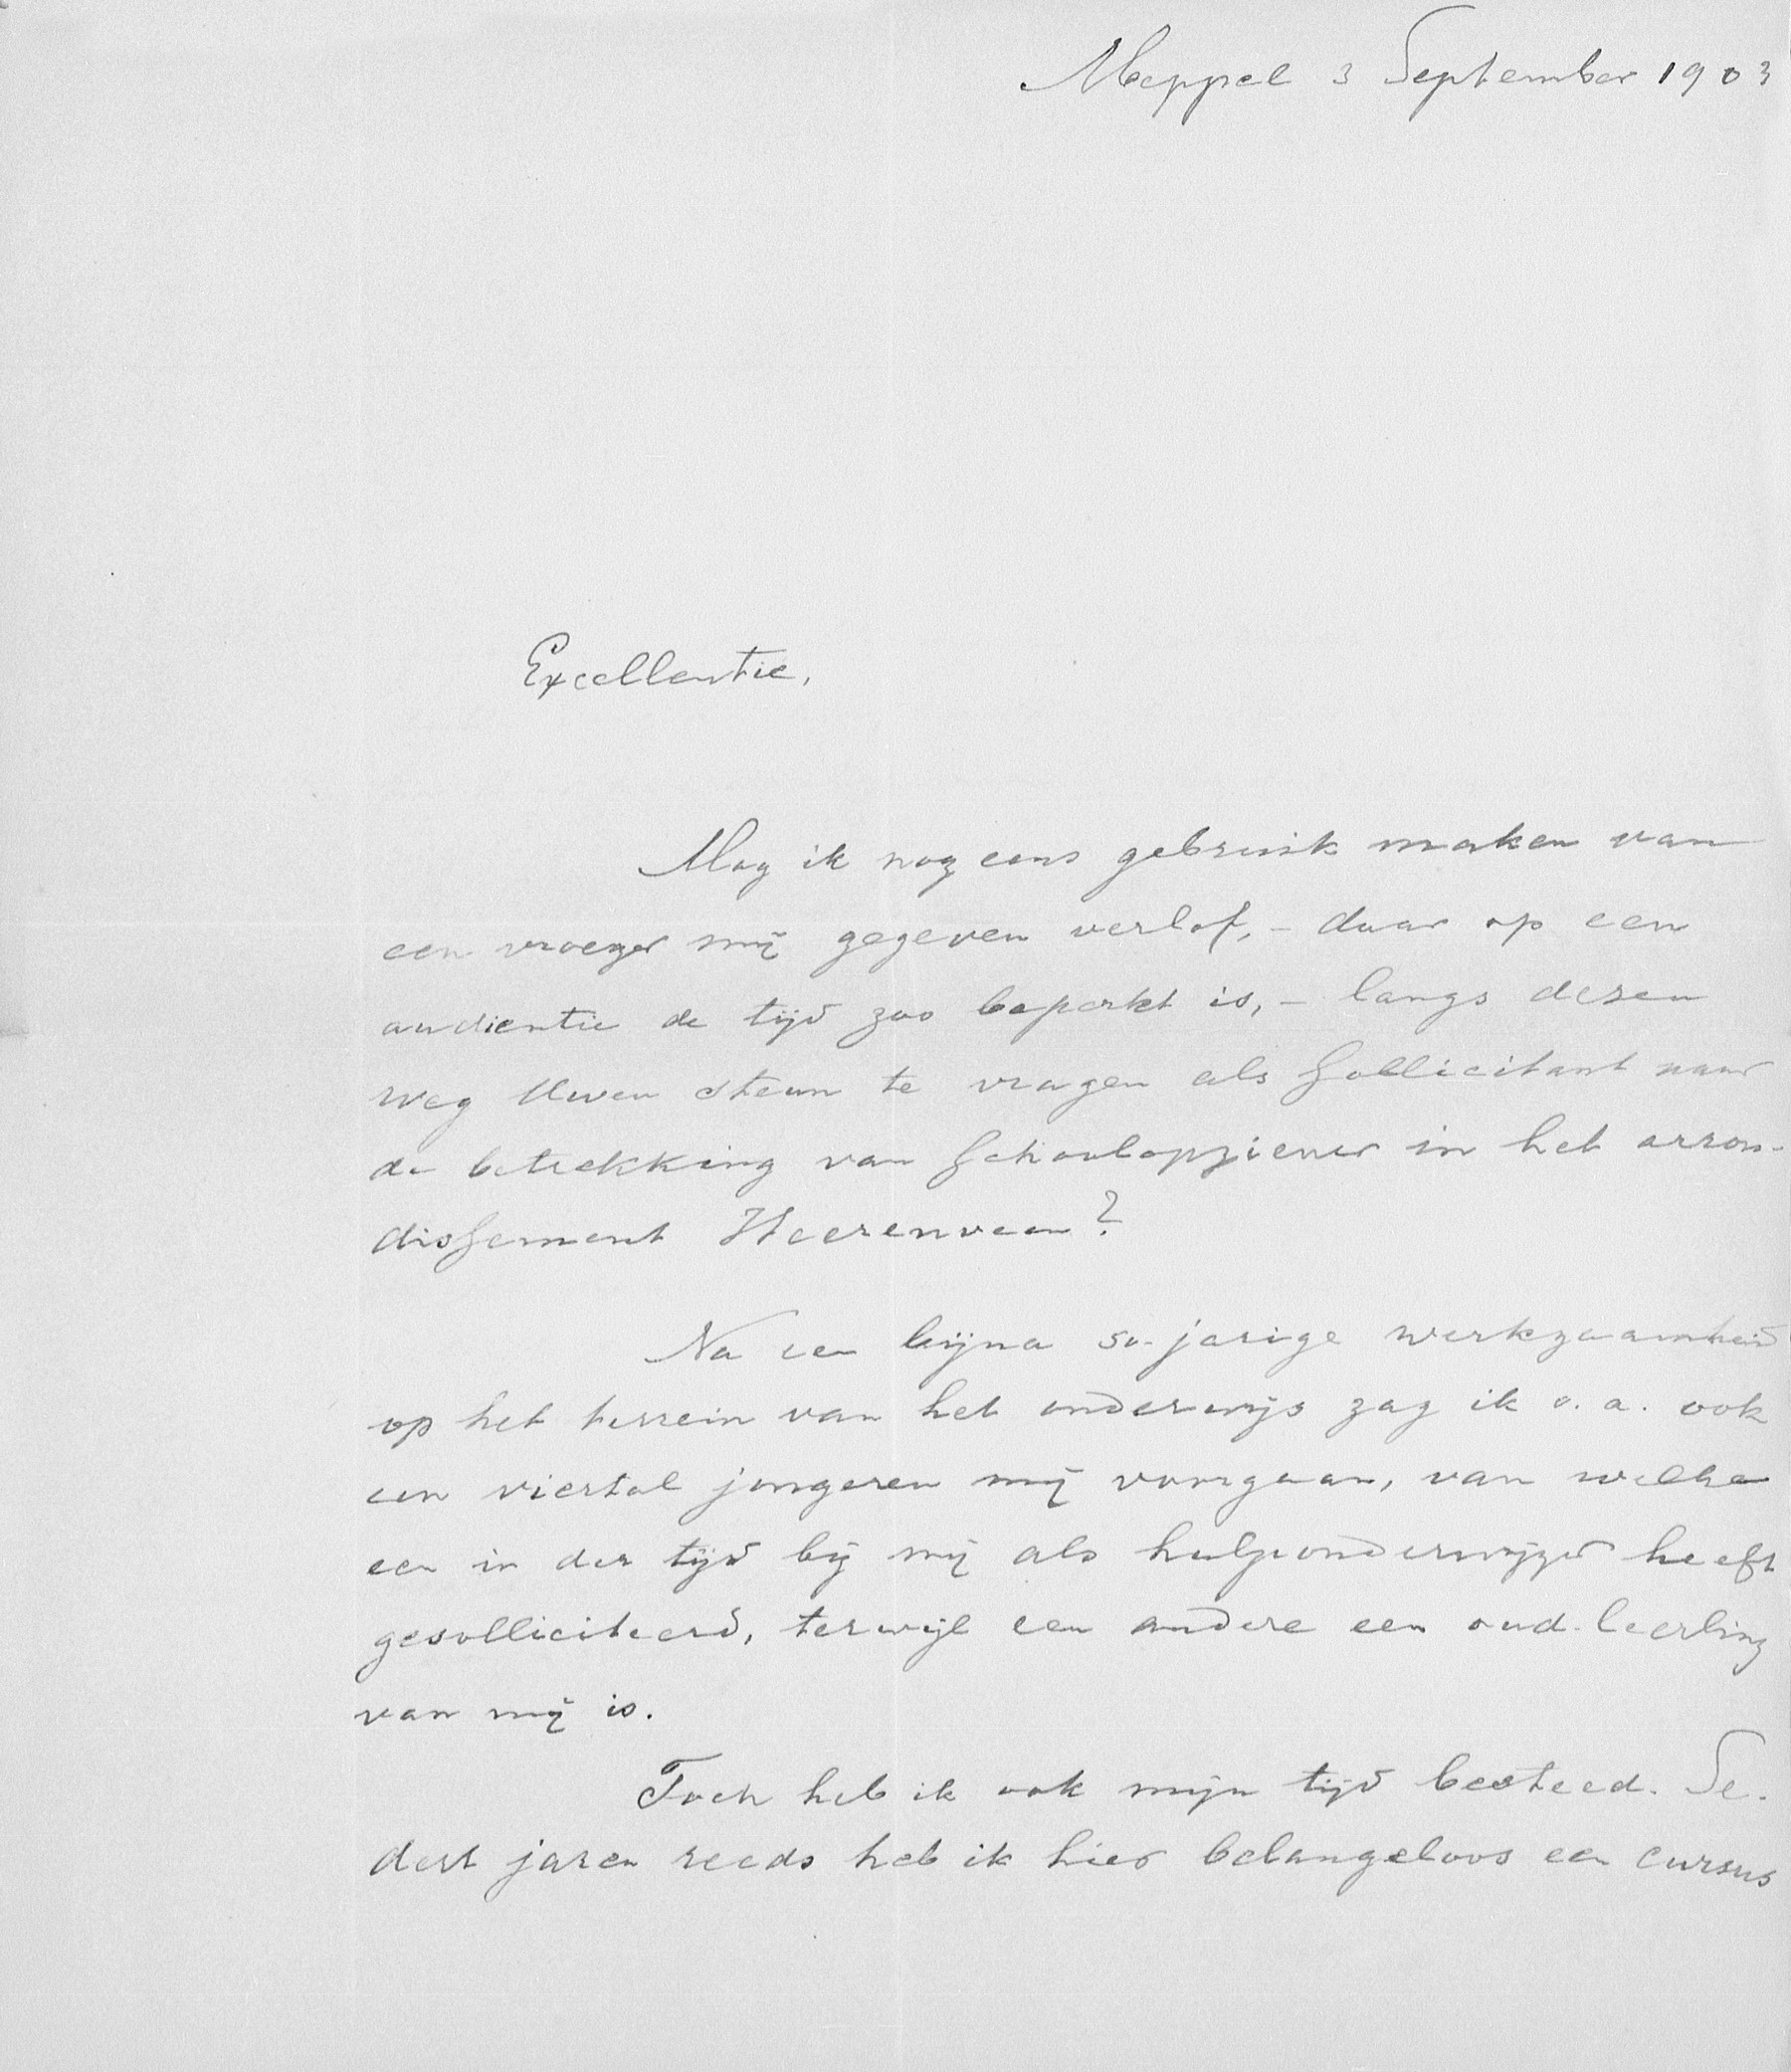 Meppel 3 September 1903
Excellentie,
Mag ik nog eens gebruik maken van
een vroeger mij gegeven verlof, - daar op een
audientie de tijd zoo beperkt is, - langs dezen
weg Uwen steun te vragen als sollicitant naar
de betrekking van schoolopziener in het arron-
dissement Heerenveen?
Na een bijna 50-jarige werkzaamheid
op het terrein van het onderwijs zag ik o. a. ook
een viertal jongeren mij voorgaan, van welke
een in der tijd bij mij als hulponderwijzer heeft
gesolliciteerd, terwijl een andere een oud-leerling
van mij is.
Toch heb ik ook mijn tijd besteed. Se-
dert jaren reeds heb ik hier belangeloos een cursus